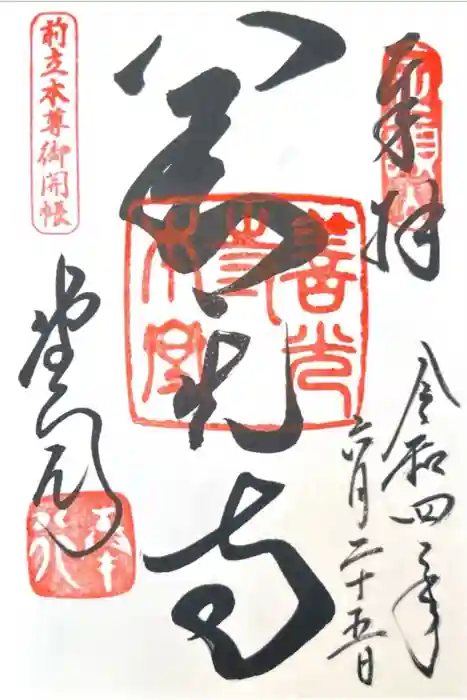 奉拝
令和四年
六月二十五日
善光寺
善光寺本堂
前立本尊御開帳
奉行